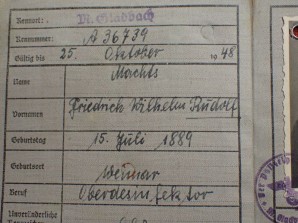 Kennort: M. Gladbach
Kennummer: A 36739
Gültig bis 25. Oktober 1948
Name Machts
Vornamen Friedrich Wilhelm Rudolf
Geburtstag 15. Juli 1889
Geburtsort Weimar
Beruf Oberdesinfektor
Unveränderliche